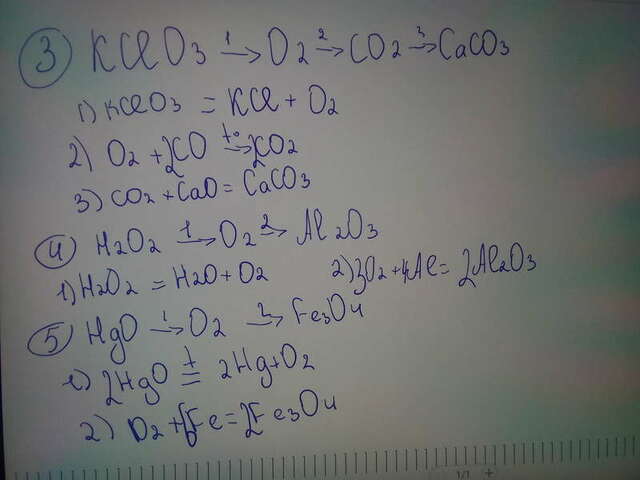 3 KClO3 1→ O2 2→ CO2 3→ CaCO3
1) KClO3 = KCl + O2
2) O2 + 2CO t°→ 2CO2
3) CO2 + CaO = CaCO3
4 H2O2 1→ O2 2→ Al2O3
1) H2O2 = H2O + O2 2) 3O2 + 4Al = 2Al2O3
5 HgO 1→ O2 2→ Fe3O4
1) 2HgO t= 2Hg + O2
2) O2 + Fe = 2Fe3O4